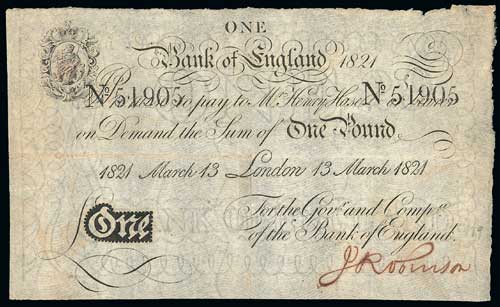 ONE
Bank of England 1821
Nº 51905 to pay to Mr. Henry Hase Nº 51905
on Demand the Sum of One Pound
1821 March 13 London 13 March 1821
For the Govr. and Compa.
of the Bank of England.
One
J Robinson